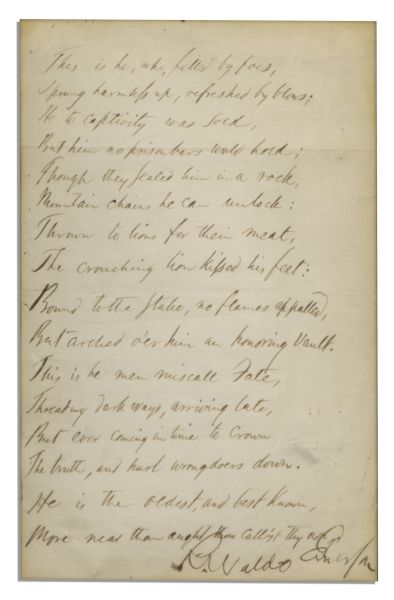 This is he, who, felled by foes,
Sprung harmless up, refreshed by blows;
He to captivity was sold,
But him no prison bars would hold;
Though they sealed him in a rock,
Mountain chains he can unlock:
Thrown to lions for their meat,
The crouching lion kissed his feet:
Bound to the stake, no flames appalled,
But arched o'er him an honoring Vault.
This is he men miscall Fate,
Threading dark ways, arriving late,
But ever coming in time to crown
The truth, and hurl wrongdoers down.
He is the oldest, and best known,
More near than aught thou call'st thy own,
R. Waldo Emerson